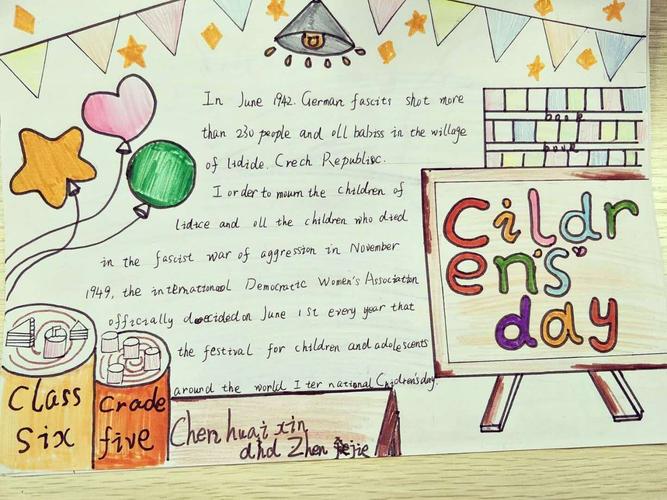 In June 1942. German fascits shot more
than 230 people and oll babiss in the willage
of lidide. Crech Republisc.
I order to moum the children of
lidice and oll the children who died
in the fascist war of aggression in November
1949, the internationool Democratic Women's Association
officially decided on June 1st every year that
the festival for children and adolescents
around the world I ter national Cjodren's day.
book
book
Cildr
en's
day
Class
Six
Crade
five
Chen huai xin
and Zhen